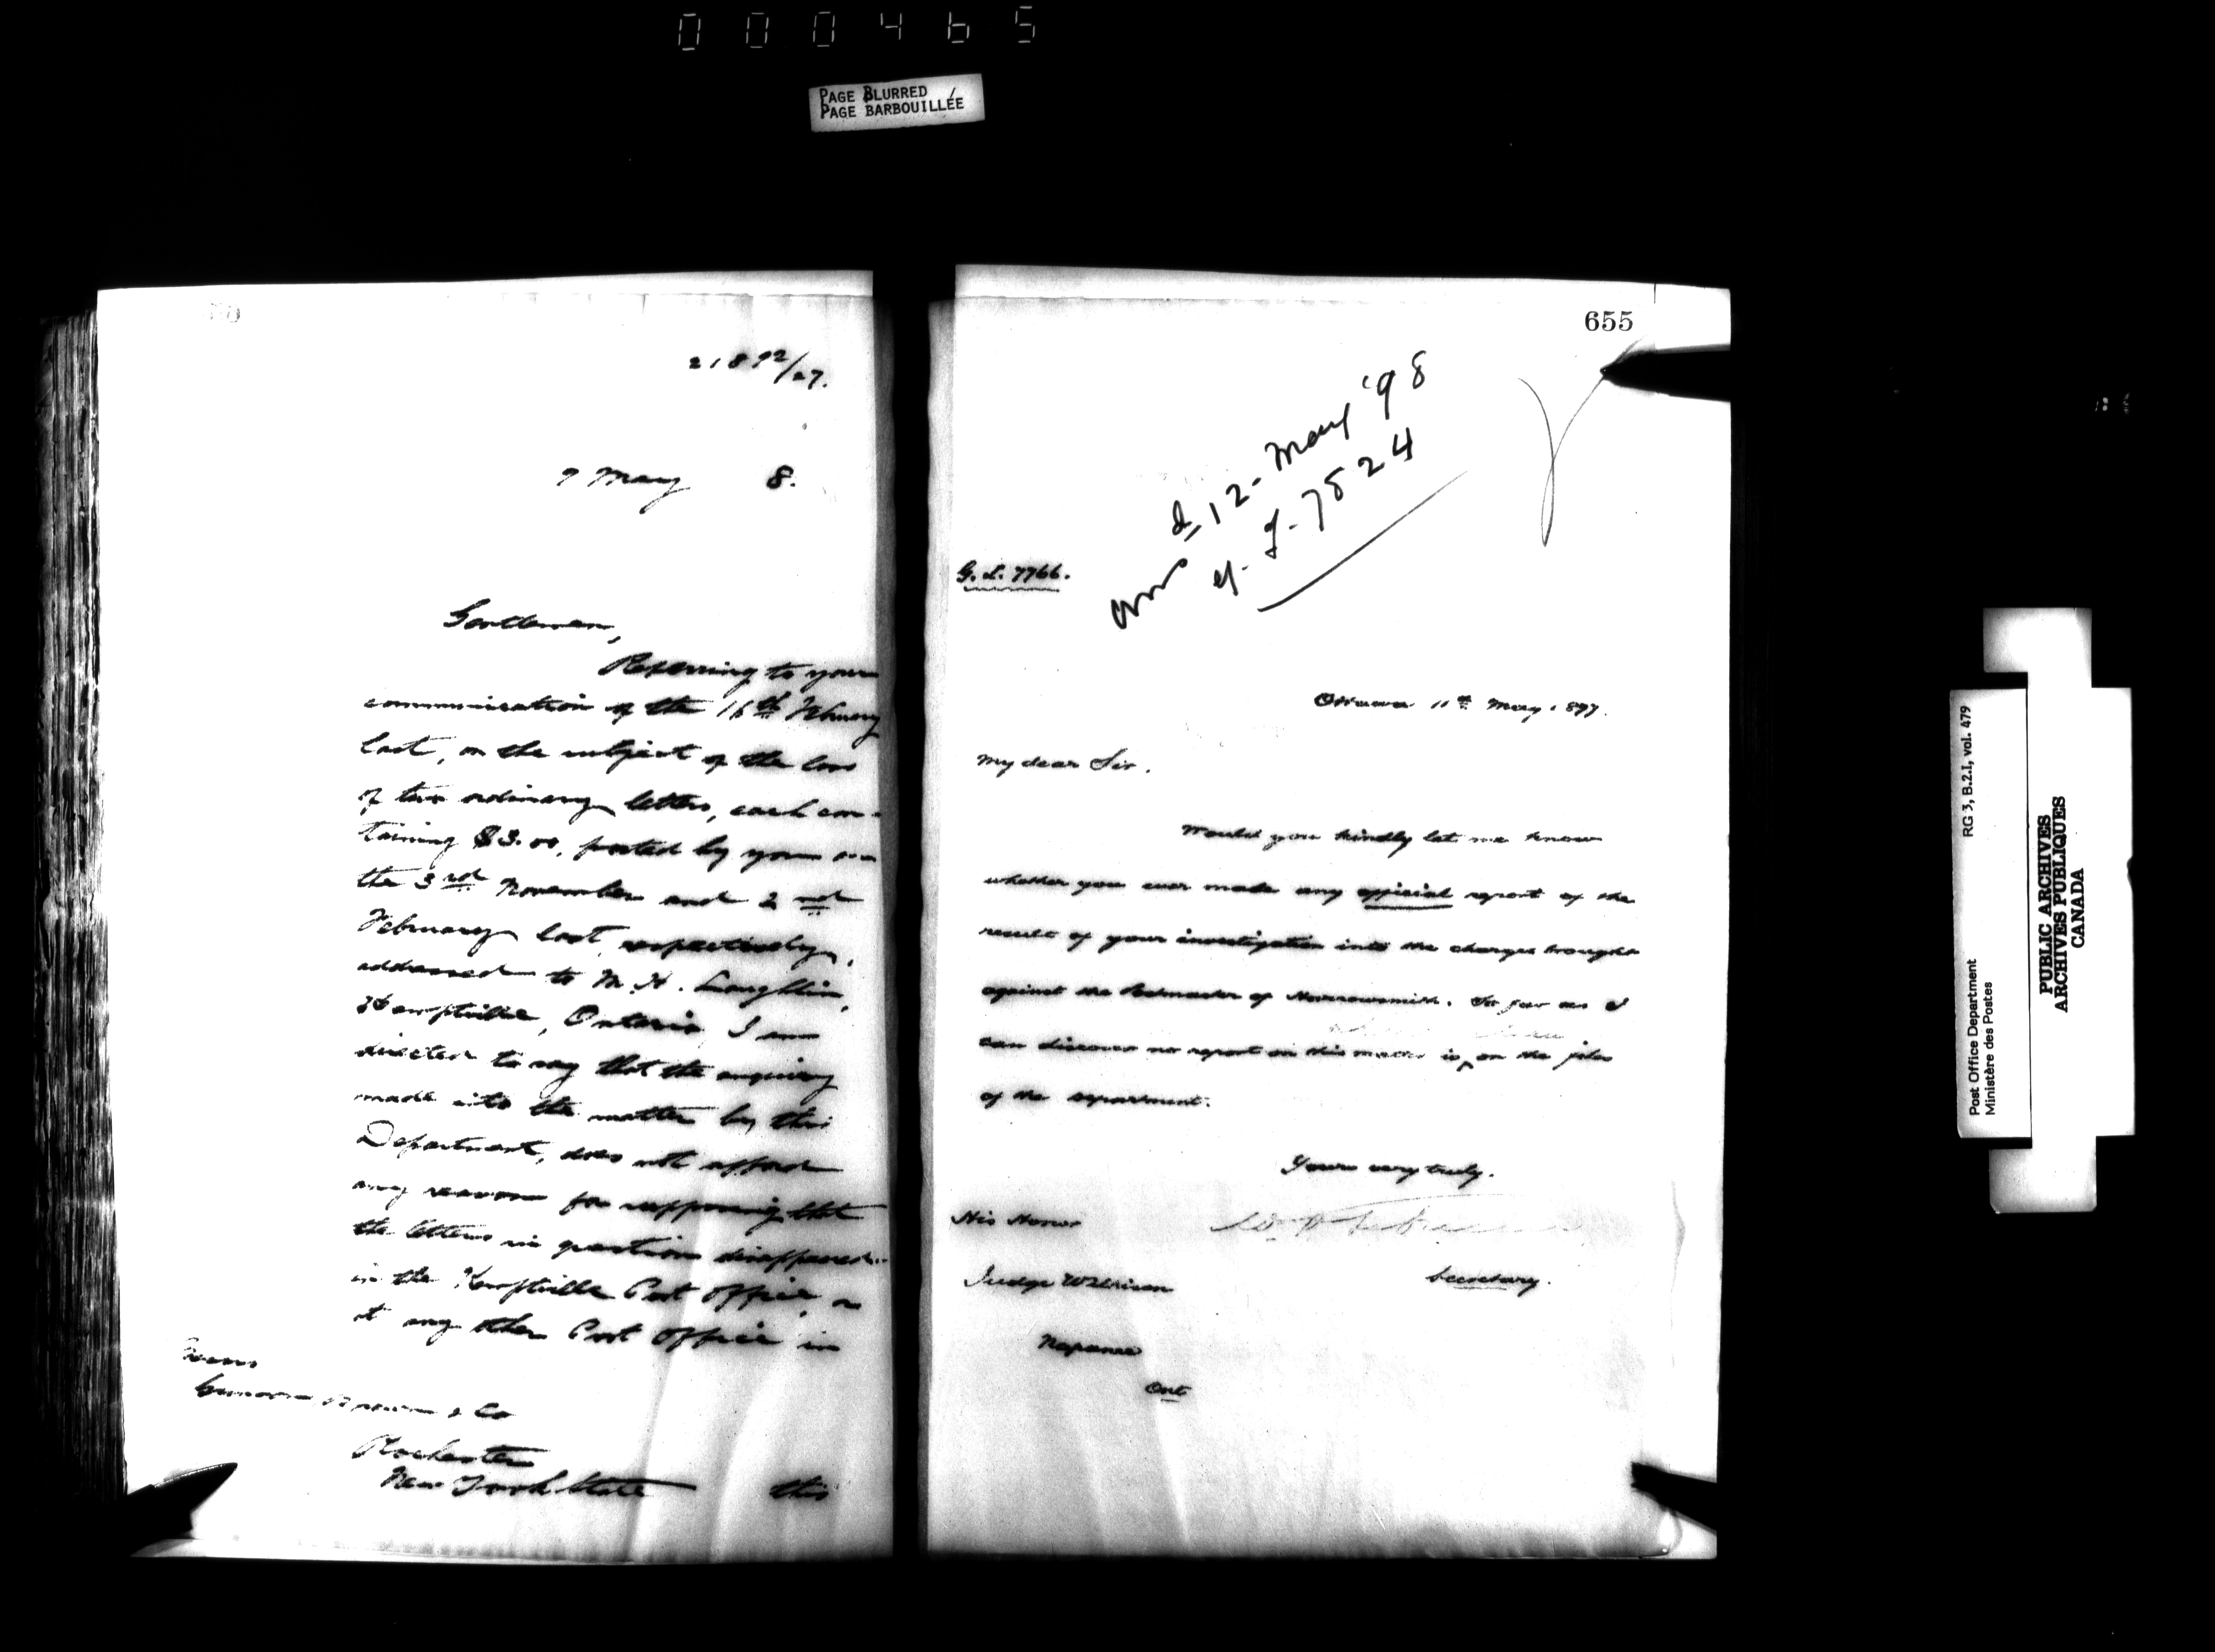 000465
PAGE BLURRED
PAGE BARBOUILLÉE
21892/27.
7 May 8.
Gentlemen,
Referring to your
communication of the 16th February
last, on the subject of the loss
of two ordinary letters, each con-
taining $3.00, posted by you on
the 3rd November and 2nd
February last, respectively,
addressed to M. H. Laughlin,
Kemptville, Ontario, I am
directed to say that the enquiry
made into the matter by this
Department, does not afford
any reason for supposing that
the letters in question disappeared
in the Kemptville Post Office, or
at any other Post Office in
Messrs
Brown & Co
Rochester
New York State
this
655
d 12 - May '98
7524
G. L. 7766.
Ottawa 11th May 1897.
My dear Sir.
Would you kindly let me know
whether you ever made any official report of the
result of your investigation into the charges brought
against the Postmaster of Harrowsmith. So far as I
can discover no report on this matter is on the files
of the department.
Yours very truly.
Secretary.
His Honor
Judge Wilkison
Napanee
Ont
Post Office Department
Ministère des Postes
RG 3, B.2.I, vol. 479
PUBLIC ARCHIVES
ARCHIVES PUBLIQUES
CANADA